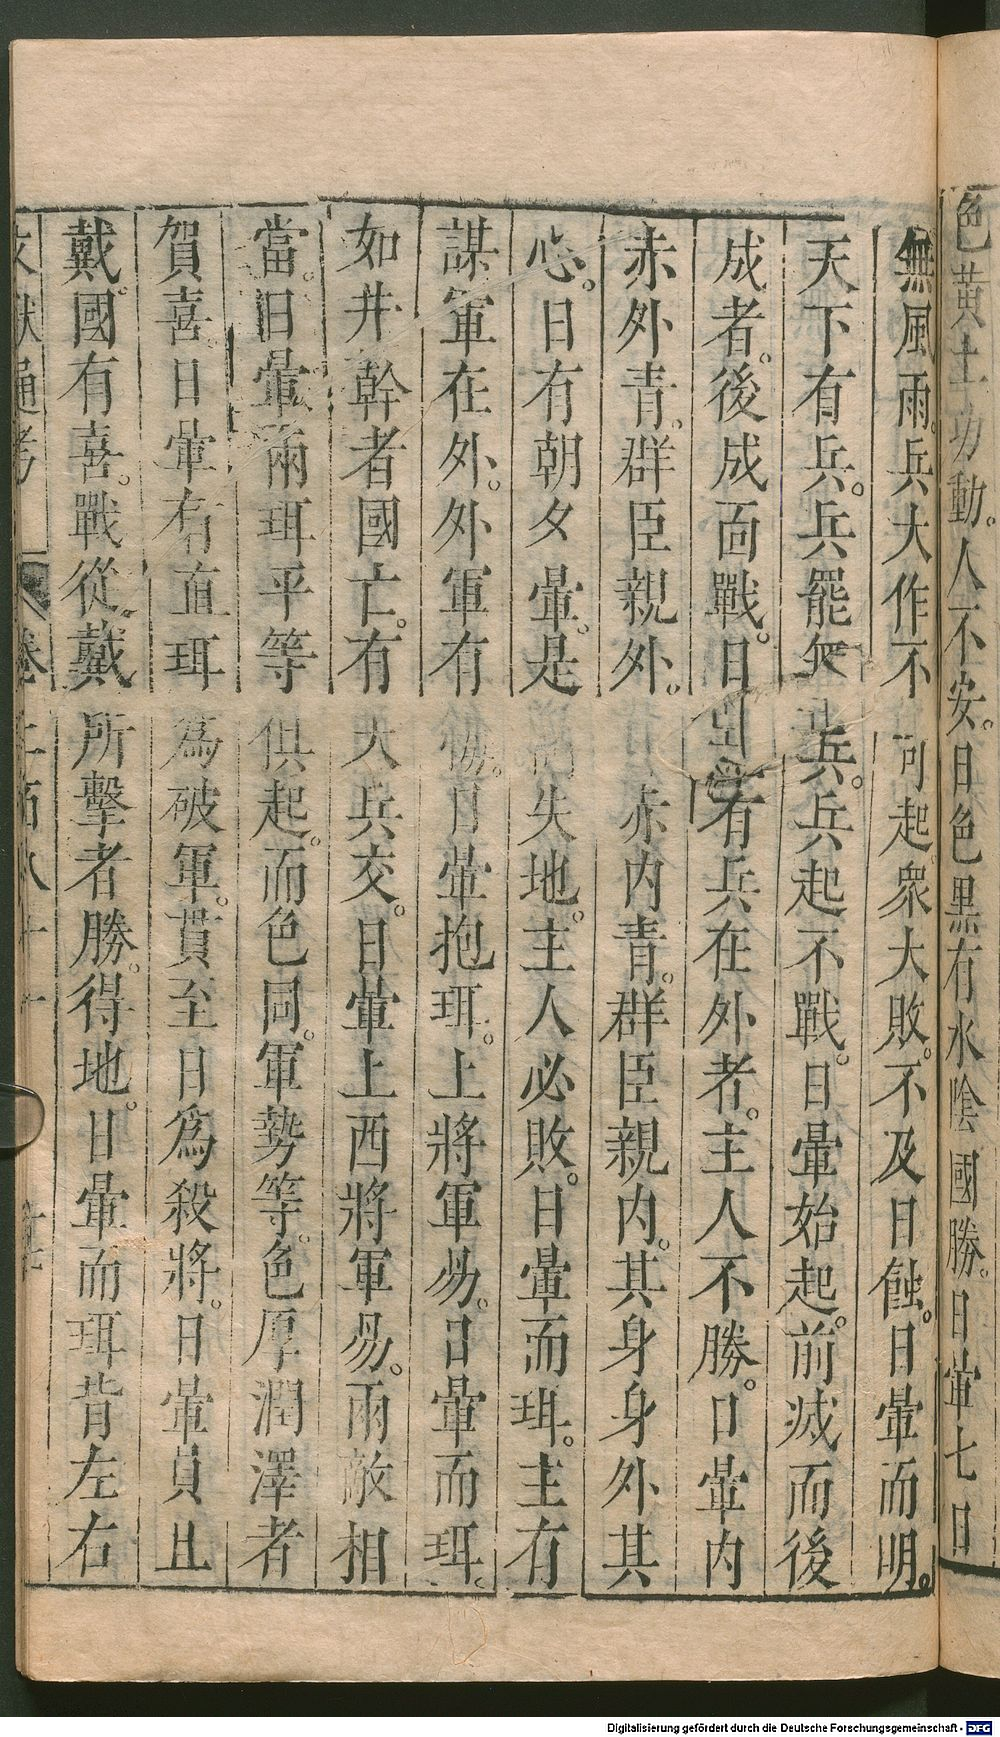 色黃土功動。人不安。日色黒有水陰國勝。日暈七日
無風雨。兵大作不可起衆大敗。不及日蝕。日暈而明。
天下有兵。兵罷無兵。兵起不戰。日暈始起。前滅而後
成者。後成面戰。日有兵在外者。主人不勝。日暈内
赤外青。群臣親外。赤内青。群臣親内。其身身外其
心。日有朝夕暈。是失地。主人必敗。日暈而珥。主有
謀軍在外。外軍有日暈抱珥。上將軍易。日暈而珥。
如井幹者國亡。有大兵交。日暈上西將軍易。兩敵相
當。日暈兩珥平等俱起。而色同。軍勢等。色厚潤澤者
賀喜日暈有直珥為破軍。貫至日爲殺將。日暈員且
戴。國有喜。戰從戴所擊者勝。得地。日暈而珥背左右
文獻通考 卷二百八十
Digitalisierung gefördert durch die Deutsche Forschungsgemeinschaft - DFG